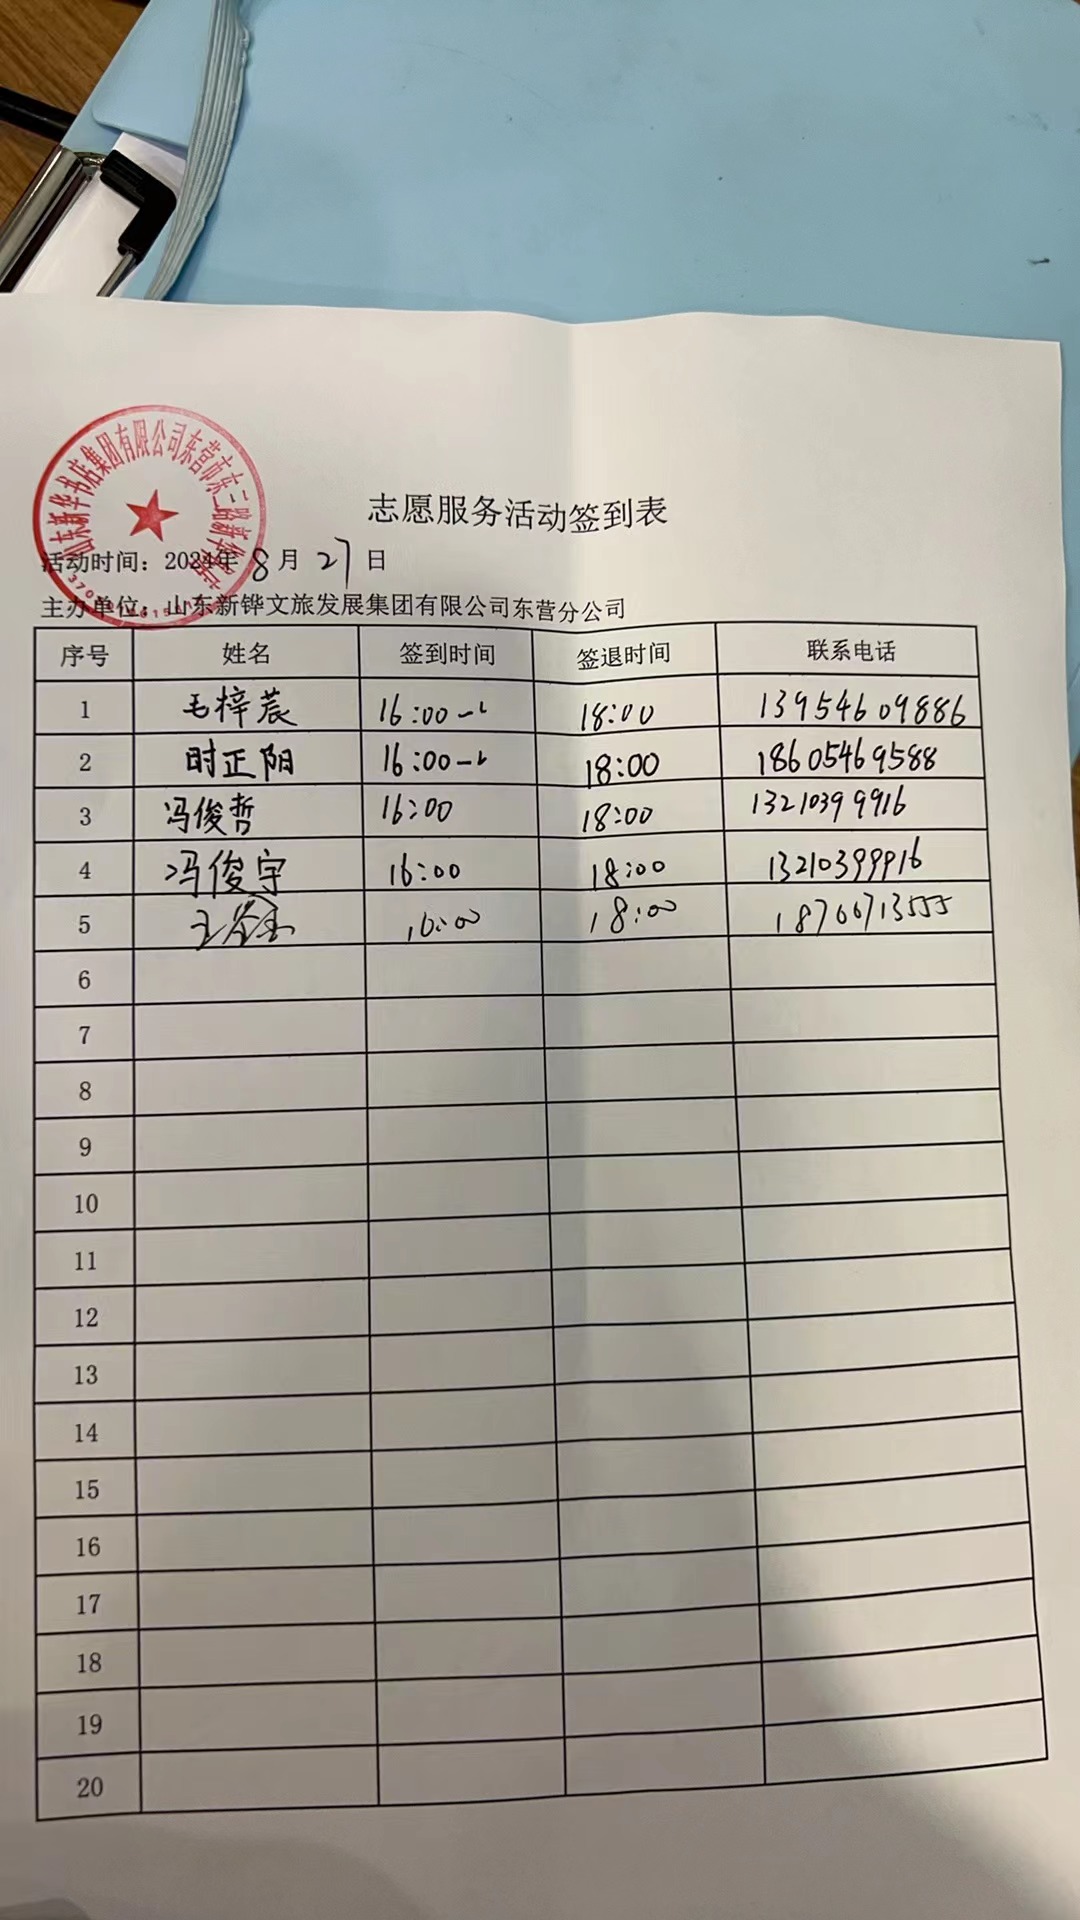 山东新华书店集团有限公司东营市东三路新华书店
志愿服务活动签到表
活动时间：2024年 8月 27日
主办单位：山东新铧文旅发展集团有限公司东营分公司
序号 姓名 签到时间 签退时间 联系电话
1 毛梓荿 16:00 18:00 13954609886
2 时正阳 16:00 18:00 18605469588
3 冯俊哲 16:00 18:00 13210399916
4 冯俊宇 16:00 18:00 13210399916
5 王 16:00 18:00 18706713555
6
7
8
9
10
11
12
13
14
15
16
17
18
19
20